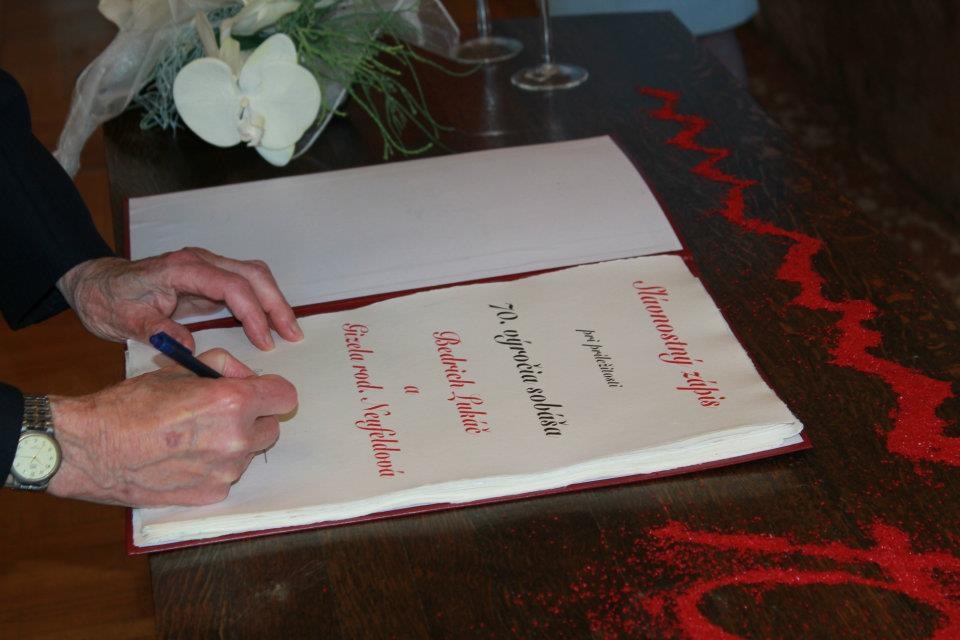 Slávnostný zápis
pri príležitosti
70. výročia sobáša
Bedrich Lukáč
a
Gizela rod. Neufeldová